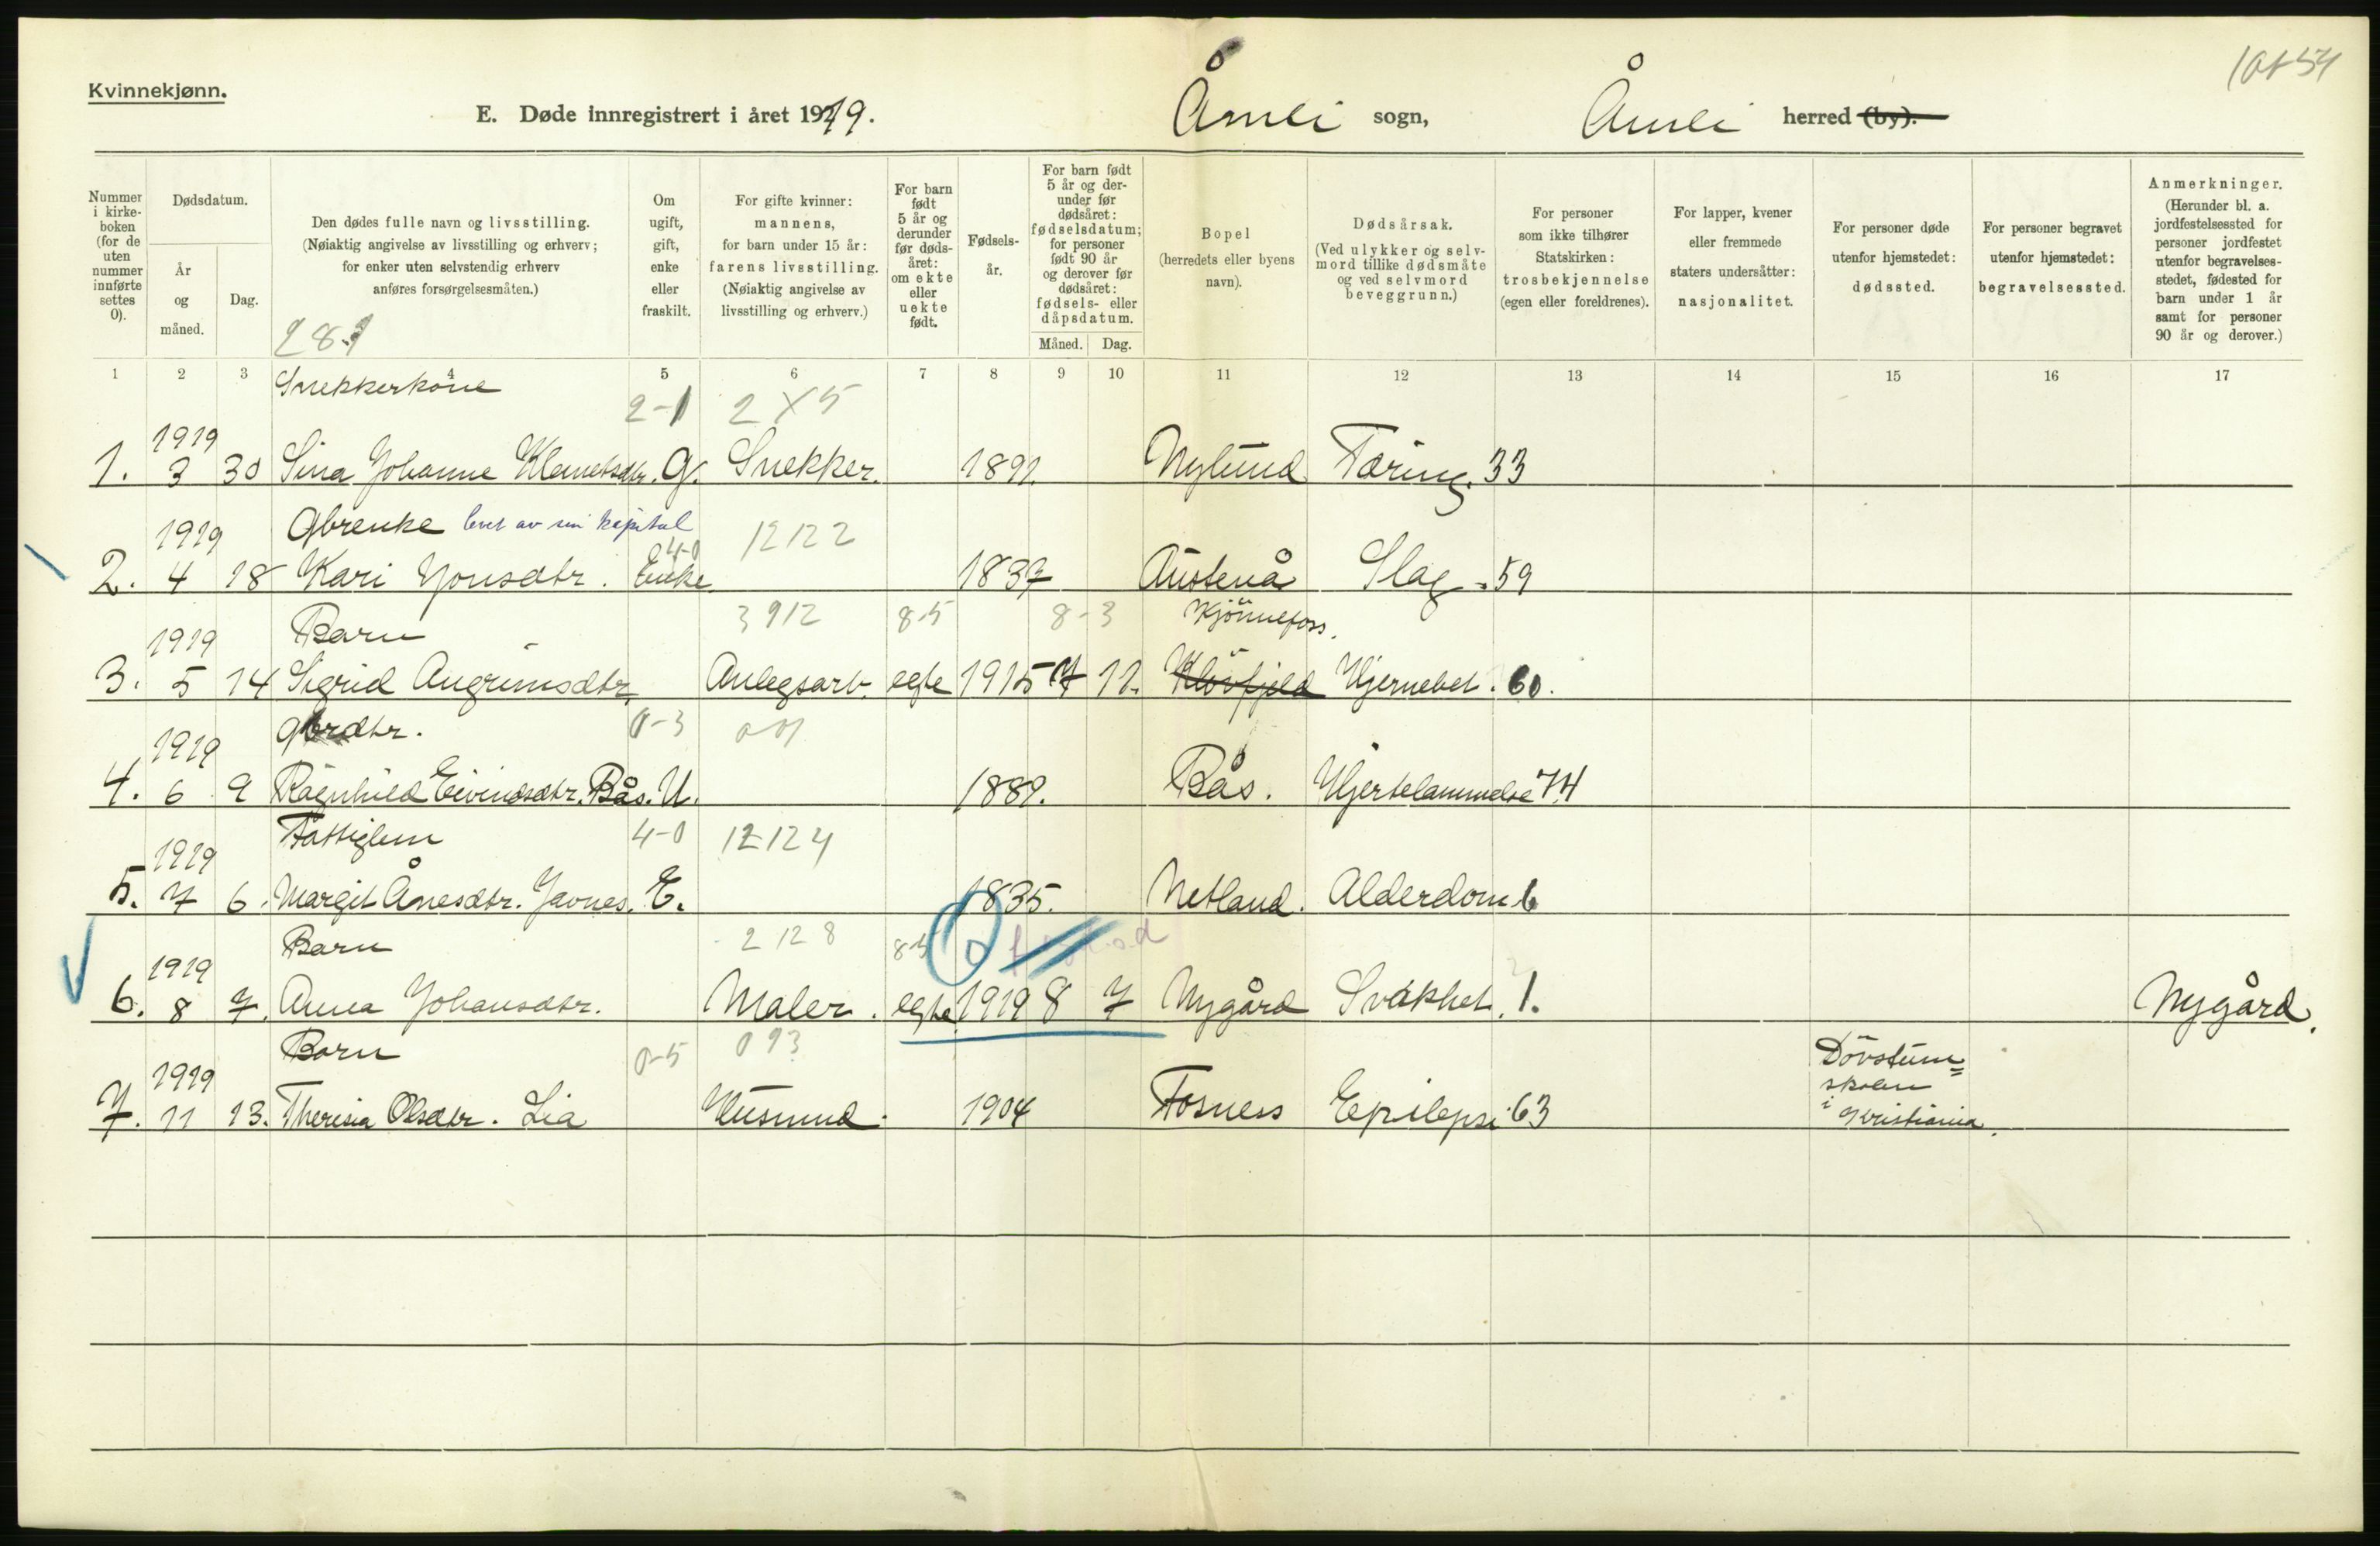 Kvinnekjønn.
E. Døde innregistrert i året 1919. Åmli sogn, Åmli herred (by).
Nummer i kirkeboken (for de uten nummer innførte settes 0).
Dødsdatum.
År og måned.
Dag.
Den dødes fulle navn og livsstilling.
(Nøiaktig angivelse av livsstilling og erhverv;
for enker uten selvstendig erhverv
anføres forsørgelsesmåten.)
281
Om ugift, gift, enke eller fraskilt.
For gifte kvinner:
mannens,
for barn under 15 år:
farens livsstilling.
(Nøiaktig angivelse av
livsstilling og erhverv.)
For barn født 5 år og derunder før dødsåret: om ekte eller uekte født.
Fødselsår.
For barn født 5 år og derunder før dødsåret: fødselsdatum; for personer født 90 år og derover før dødsåret: fødsels- eller dåpsdatum.
Måned. Dag.
Bopel
(herredets eller byens
navn).
Dødsårsak.
(Ved ulykker og selv-
mord tillike dødsmåte
og ved selvmord
beveggrunn.)
For personer
som ikke tilhører
Statskirken:
trosbekjennelse
(egen eller foreldrenes).
For lapper, kvener
eller fremmede
staters undersåtter:
nasjonalitet.
For personer døde
utenfor hjemstedet:
dødssted.
For personer begravet
utenfor hjemstedet:
begravelsessted.
Anmerkninger.
(Herunder bl. a.
jordfestelsessted for
personer jordfestet
utenfor begravelses-
stedet, fødested for
barn under 1 år
samt for personer
90 år og derover.)
1 2 3 4 5 6 7 8 9 10 11 12 13 14 15 16 17
Snekkerkone 2-1 2 X 5
1919
1. 3 30 Sina Johanne Klemetsdtr. G. Snekker. 1891. Nylund Tæring. 33
1919 Gbrenke levet av sin kapital 4-0 12 12 2
2. 4 18 Kari Jonsdtr. Enke. 1837 Austenå Slag 59
1919 Barn 3 9 12 8-5 8-3 Kjönnefoss.
3. 5 14 Sigrid Angrimsdtr Anlegsarb. egte 1915 7 11. Klövfjeld Hjernebet. 60.
1919 Gbrdtr. 0-3 001
4. 6 9 Ragnhild Eivindsdtr. Bås. U. 1889. Bås. Hjertelammelse 74
1919 Fattiglem 4-0 12 12 4
5. 7 6. Margit Ånesdtr. Javnes. E. 1835. Netland. Alderdom 6
1919 Barn 2 12 8 8-5 0
6. 8 7. Anna Johansdtr. Maler. egte 1919 8 7 Nygård Svakhet. 1. Nygård.
1919 Barn 0-5 093 Dövstum=
skolen
i Kristiania.
7. 11 13. Theresia Olsdtr. Lia Husmnd. 1904 Fosness Epilepsi 63